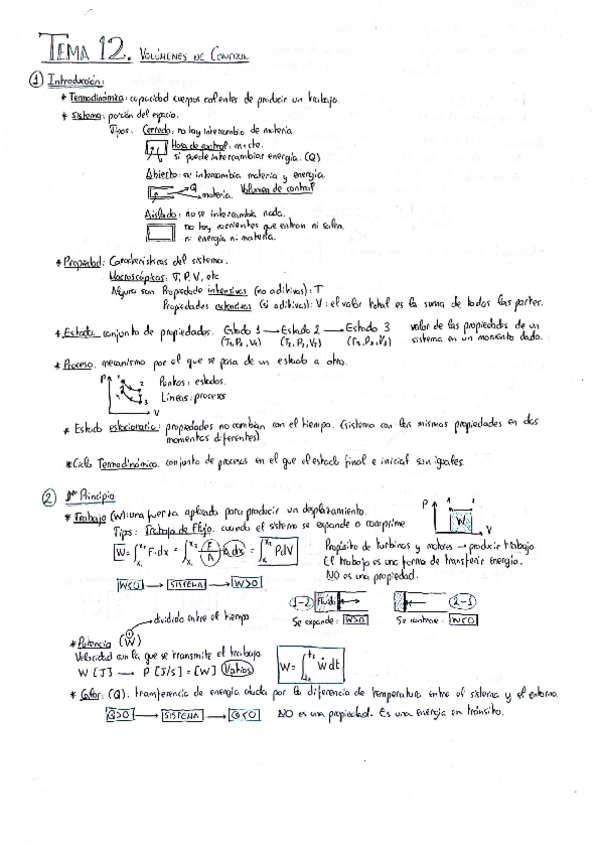 TEMA 12. VOLÚMENES DE CONTROL
1 Introducción:
* Termodinámica: capacidad cuerpos calientes de producir un trabajo.
* Sistema: porción del espacio.
Tipos: Cerrado: no hay intercambio de materia.
Masa de control: m=cte.
si puede intercambiar energía. (Q)
Abierto: se intercambia materia y energía.
Q Volumen de control
materia.
Aislado: no se intercambia nada.
no hay corrientes que entran ni salen
ni energía ni materia.
* Propiedad: Características del sistema.
Macroscópicas: T, P, V, etc
Algunas son Propiedade intensivas (no aditivas): T
Propiedades extensivas (si aditivas): V: el valor total es la suma de todas las partes.
* Estado: conjunto de propiedades. Estado 1 → Estado 2 → Estado 3 valor de las propiedades de un
(T₁, P₁, V₁) (T₂, P₂, V₂) (T₃, P₃, V₃) sistema en un momento dado.
* Proceso: mecanismo por el que se pasa de un estado a otro.
P 1 2 Puntos: estados.
3 Líneas: procesos
V
* Estado estacionario: propiedades no cambian con el tiempo. (sistema con las mismas propiedades en dos
momentos diferentes).
* Ciclo Termodinámico: conjunto de procesos en el que el estado final e inicial son iguales.
2 1er Principio
* Trabajo (W): una fuerza aplicada para producir un desplazamiento.
Tipos: Trabajo de Flujo: cuando el sistema se expande o comprime.
P W V
W = ∫ F·dx = ∫ F/A A dx = ∫ PdV
Propósito de turbinas y motores → producir trabajo
El trabajo es una forma de transferir energía.
NO es una propiedad.
W<0 → SISTEMA → W>0
1-2 Fluido 2-1
Se expande: W>0 Se contrae: W<0
dividido entre el tiempo
* Potencia (Ẇ)
Velocidad con la que se transmite el trabajo.
W [J] → P [J/s] = [W] Vatios
W = ∫ Ẇ dt
* Calor: (Q): transferencia de energía dada por la diferencia de temperatura entre el sistema y el entorno.
Q>0 → SISTEMA → Q<0 NO es una propiedad. Es una energía en tránsito.